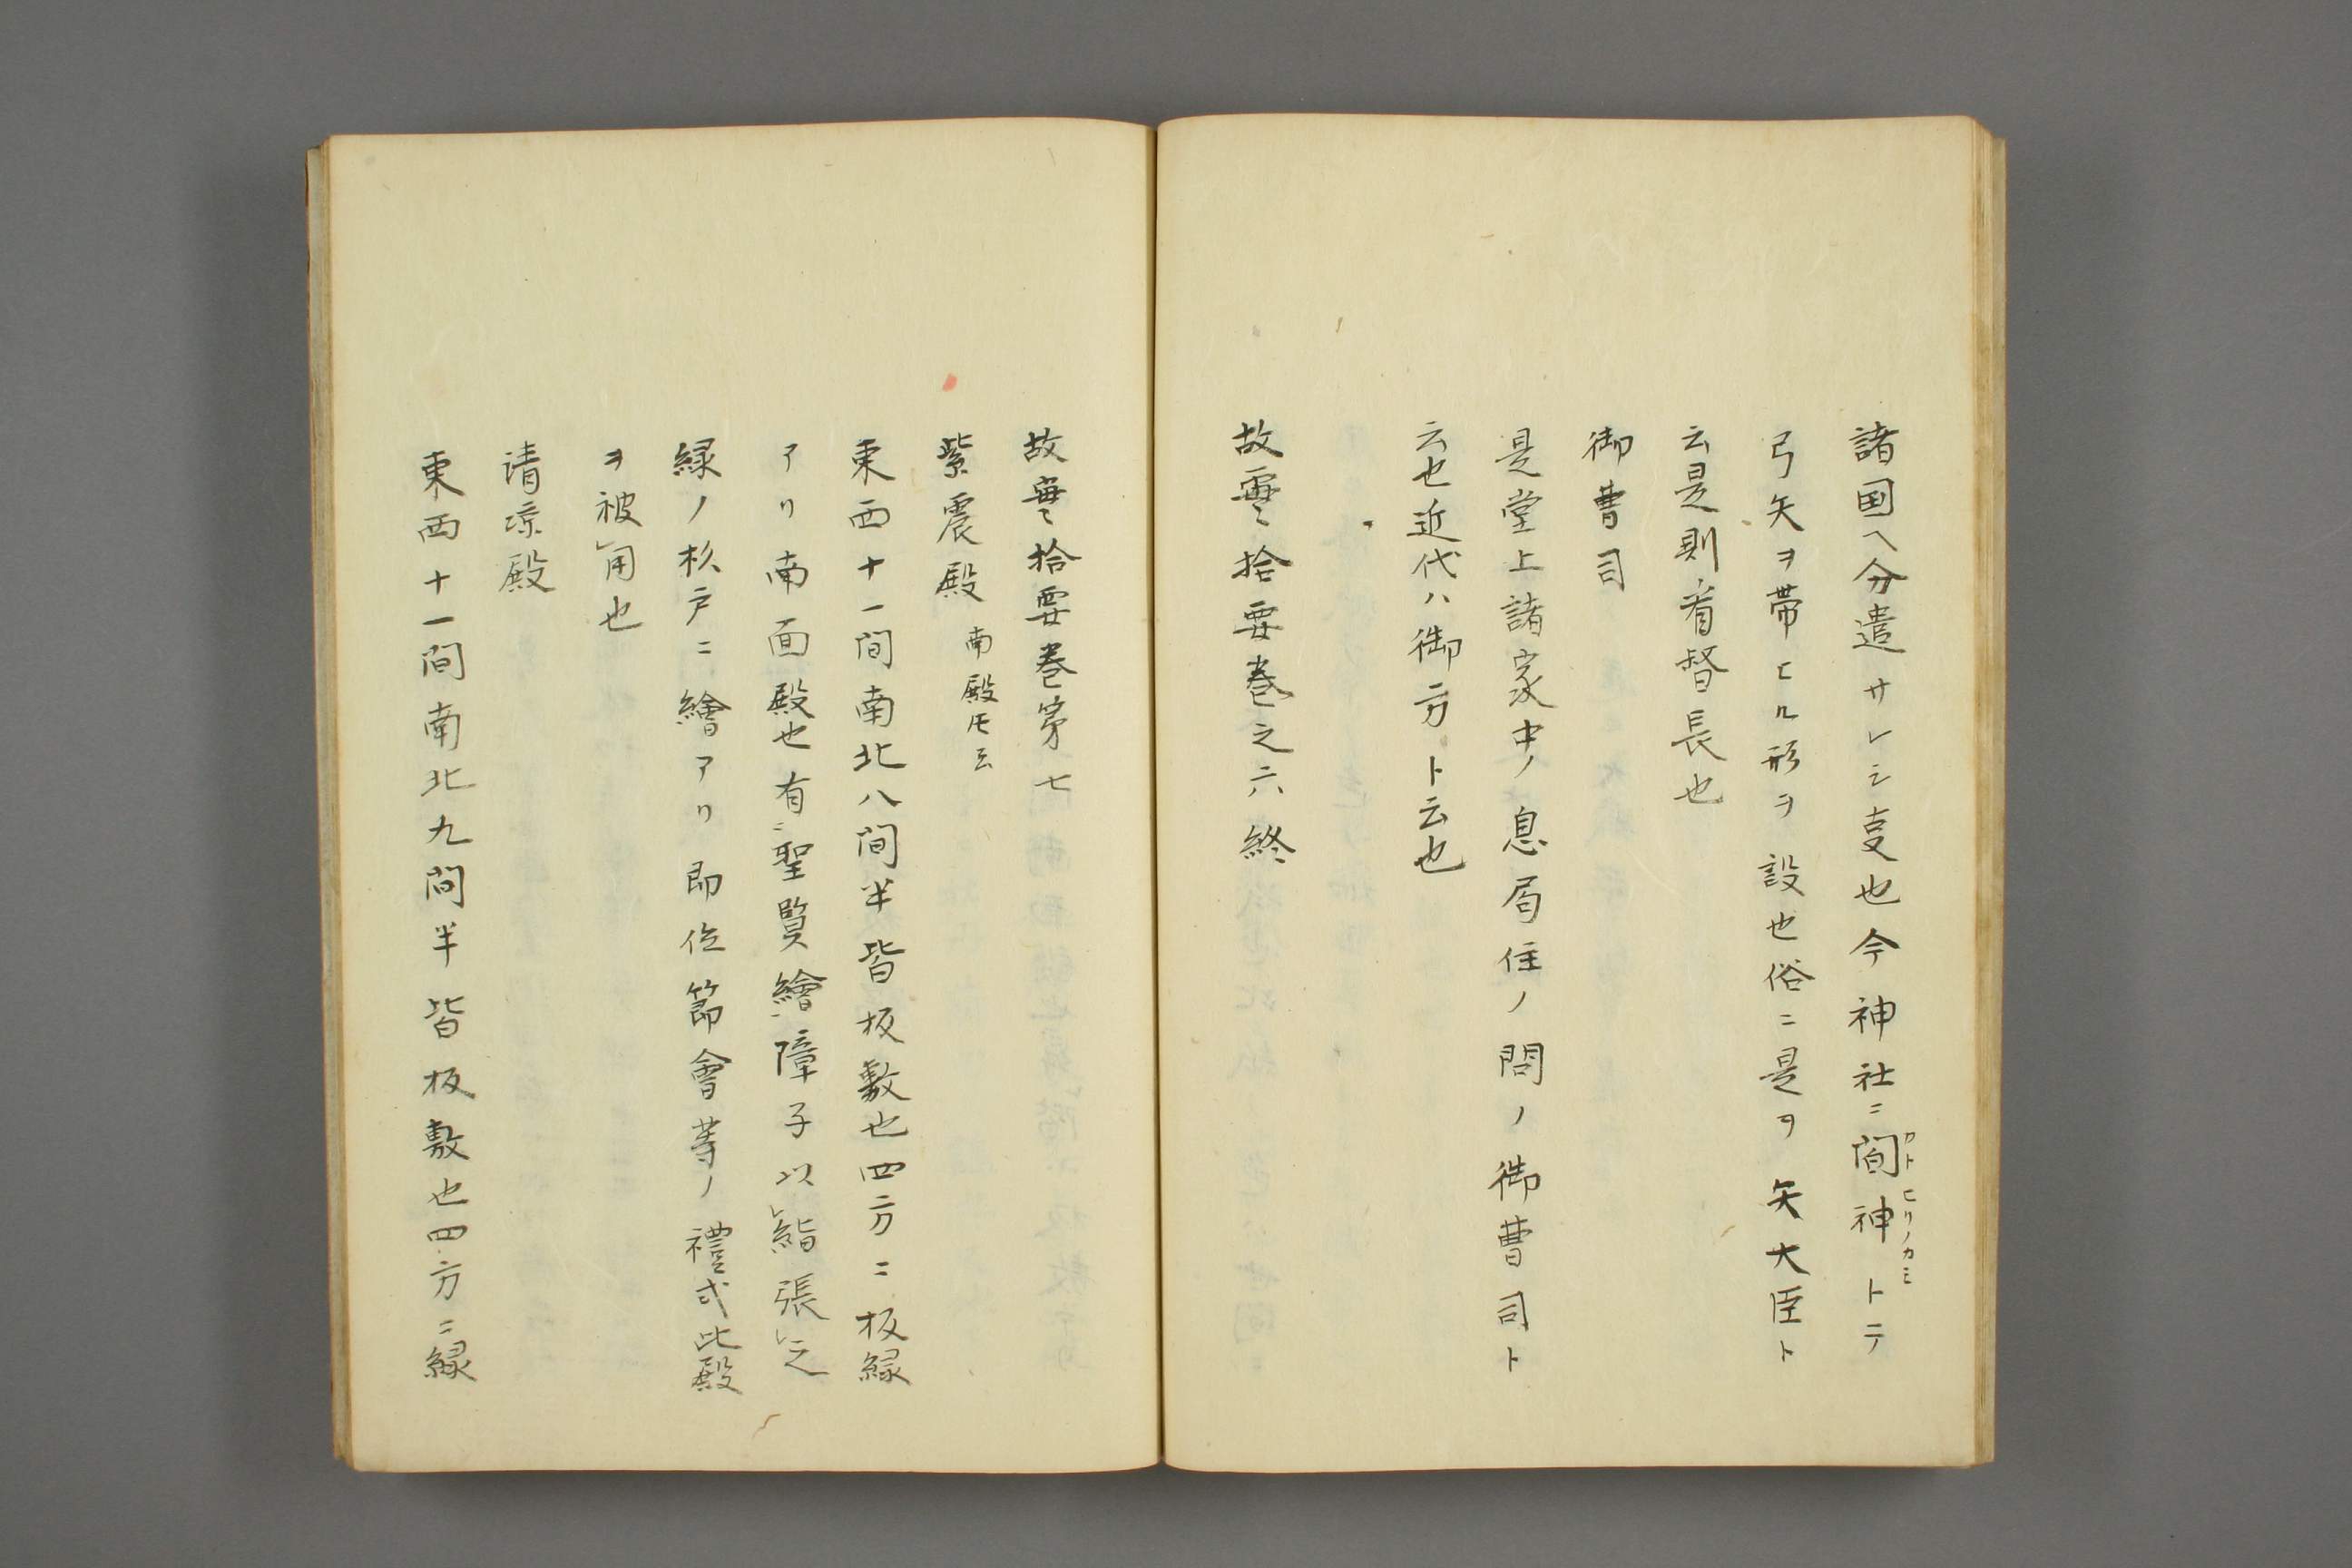 諸国ヘ分遣サレシ叓也今神社ニ間神トテ
カトヒリノカミ
弓矢ヲ帯ヒル形ヲ設也俗ニ是ヲ矢大臣ト
云是則看督長也
御曹司
是堂上諸家中ノ息局住ノ間ノ御曹司ト
云也近代ハ御方ト云也
故実拾要巻之六終
故実拾要巻第七
紫震殿 南殿トモ云
東西十一間南北八間半皆板敷也四方ニ板縁
アリ南面殿也有聖賢繪障子以絹張之
緑ノ杉戸ニ繪アリ即位節會等ノ禮式此殿
ヲ被用也
清涼殿
東西十一間南北九間半皆板敷也四方ニ縁